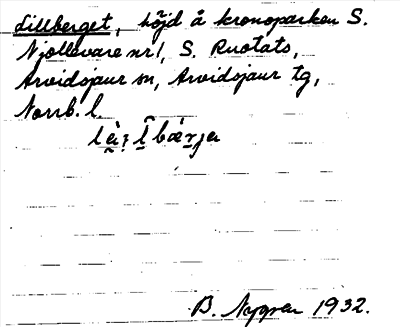 Lillberget, höjd å kronoparken S.
Njallevare nr 1, S. Ruotats,
Arvidsjaur sn, Arvidsjaur tg,
Norrb. l.
B. Nygren 1932.